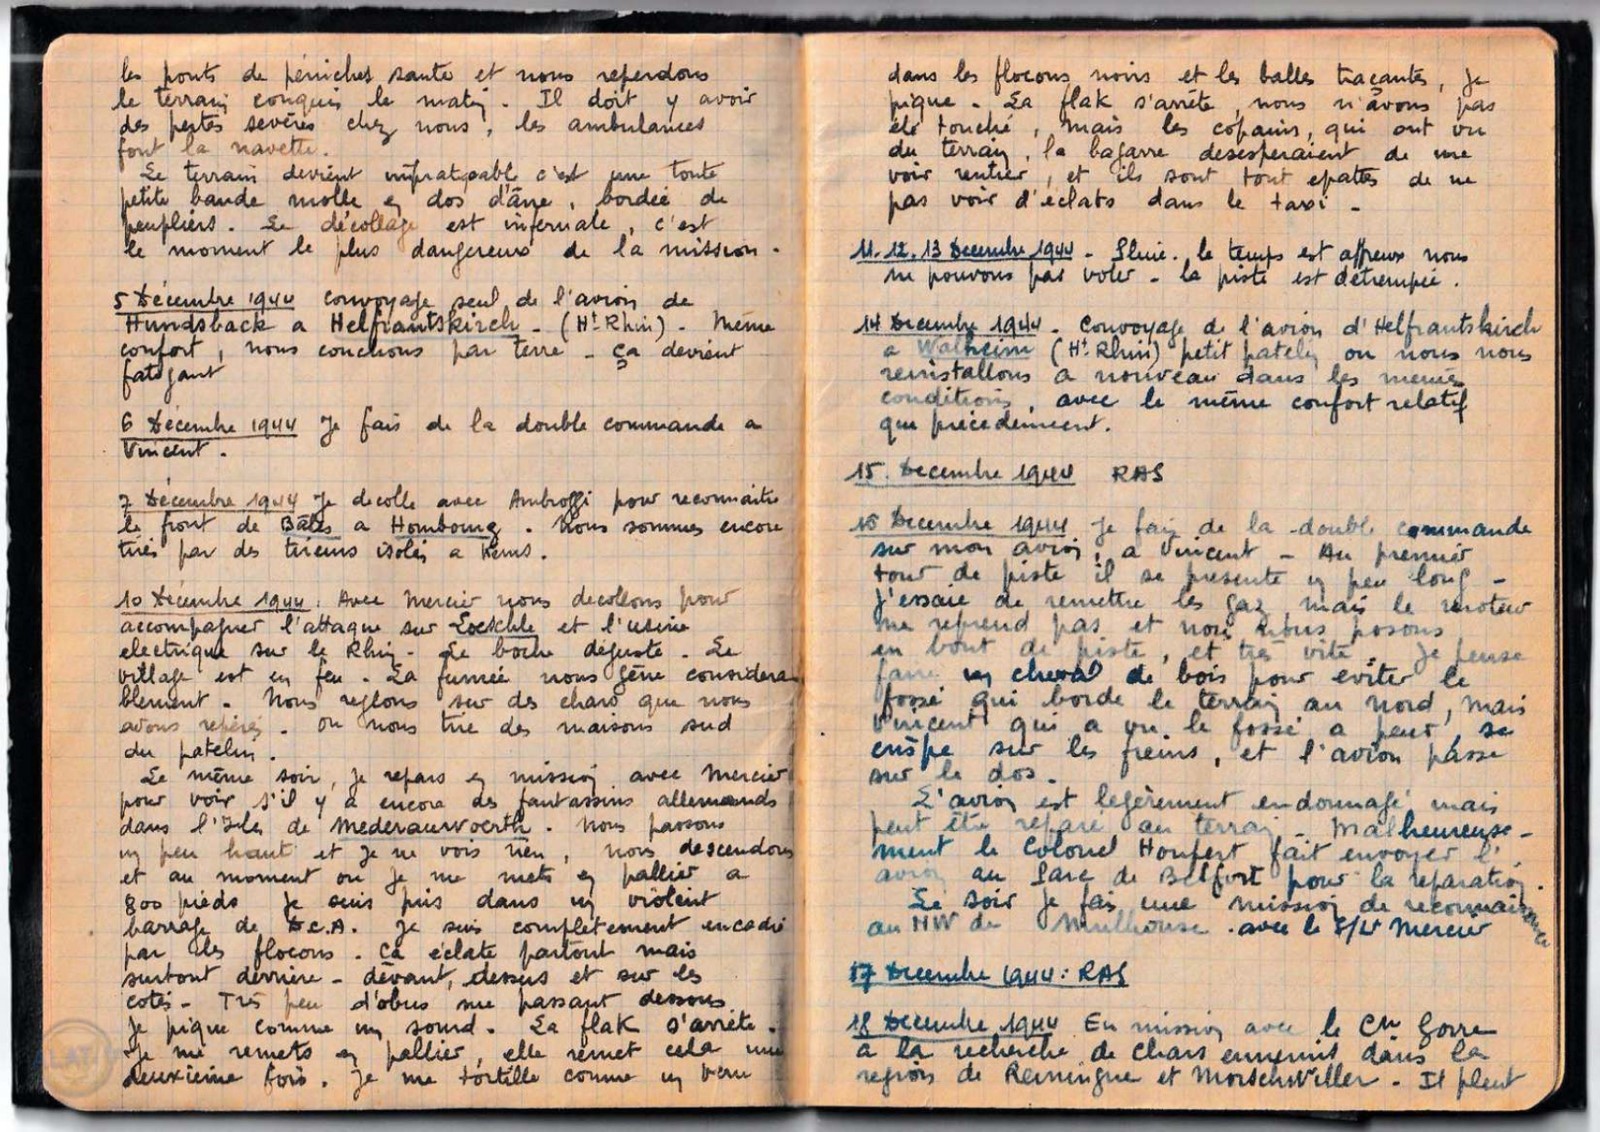 les ponts de péniches saute et nous reperdons
le terrain conquis le matin. Il doit y avoir
des pertes sevères chez nous, les ambulances
font la navette.
Le terrain devient impraticable c'est une toute
petite bande molle en dos d'âne, bordée de
peupliers. Le décollage est infernale, c'est
le moment le plus dangereux de la mission.
5 Décembre 1944 convoyage seul de l'avion de
Hundsback a Helfrantskirch - (Ht Rhin). Même
confort, nous couchons par terre - ça devient
fatigant
6 Décembre 1944 Je fais de la double commande a
Vincent.
7 Décembre 1944 Je decolle avec Ambroggi pour reconnaitre
le front de Bâles a Hombourg. Nous sommes encore
tirés par des tireurs isolés a Kems.
10 Décembre 1944. Avec Mercier nous decollons pour
accompagner l'attaque sur Loeschle et l'usine
electrique sur le Rhin - Le boche déguste. Le
village est en feu. La fumée nous gêne considera
blement. Nous reglons sur des chars que nous
avons repérés. on nous tire des maisons sud
du patelin.
Le même soir, je repars en mission avec Mercier
pour voir s'il y a encore des fantassins allemands
dans l'Isle de Mederaurwoerth. Nous passons
un peu haut et je ne vois rien, nous descendons
et au moment ou je me mets en pallier a
800 pieds je suis pris dans un violent
barrage de D.C.A. je suis complètement encadré
par les flocons. Ca éclate partout mais
surtout derrière - devant, dessus et sur les
cotés - Très peu d'obus me passant dessous
Je pique comme un sourd. La flak s'arrête.
Je me remets en pallier, elle remet cela une
deuxieme fois. Je me tortille comme un veru
dans les flocons noirs et les balles traçantes, je
pique. La flak s'arrête, nous n'avons pas
été touché, mais les copains, qui ont vu
du terrain, la bagarre desesperaient de me
voir rentrer, et ils sont tout epatés de ne
pas voir d'éclats dans le taxi -
11. 12. 13 Decembre 1944 - Pluie. le temps est affreux nous
ne pouvons pas voler - la piste est détrempée.
14 Decembre 1944 - Convoyage de l'avion d'Helfrantskirch
a Walheim (Ht Rhin) petit patelin ou nous nous
reinstallons a nouveau dans les memes
conditions, avec le même confort relatif
que précedemment.
15. Decembre 1944 RAS
16 Decembre 1944 Je fais de la double commande
sur mon avion, a Vincent - Au premier
tour de piste il se presente un peu long -
J'essaie de remettre les gaz mais le moteur
ne reprend pas et nous nous posons
en bout de piste, et très vite. Je pense
faire un cheval de bois pour eviter le
fossé qui borde le terrain au nord, mais
Vincent qui a vu le fossé a peur, se
crispe sur les freins, et l'avion passe
sur le dos.
L'avion est legèrement endommagé mais
peut être reparé au terrain - Malheureuse-
ment le Colonel fait envoyer l'
avion au Parc de Belfort pour la reparation.
Le soir je fais une mission de reconnaissance
au NW de Mulhouse. avec le S/Lt Mercier
17 Decembre 1944: RAS
18 Decembre 1944 En mission avec le Cne Gorre
a la recherche de chars ennemis dans la
region de Reiningue et Morschwiller - Il pleut